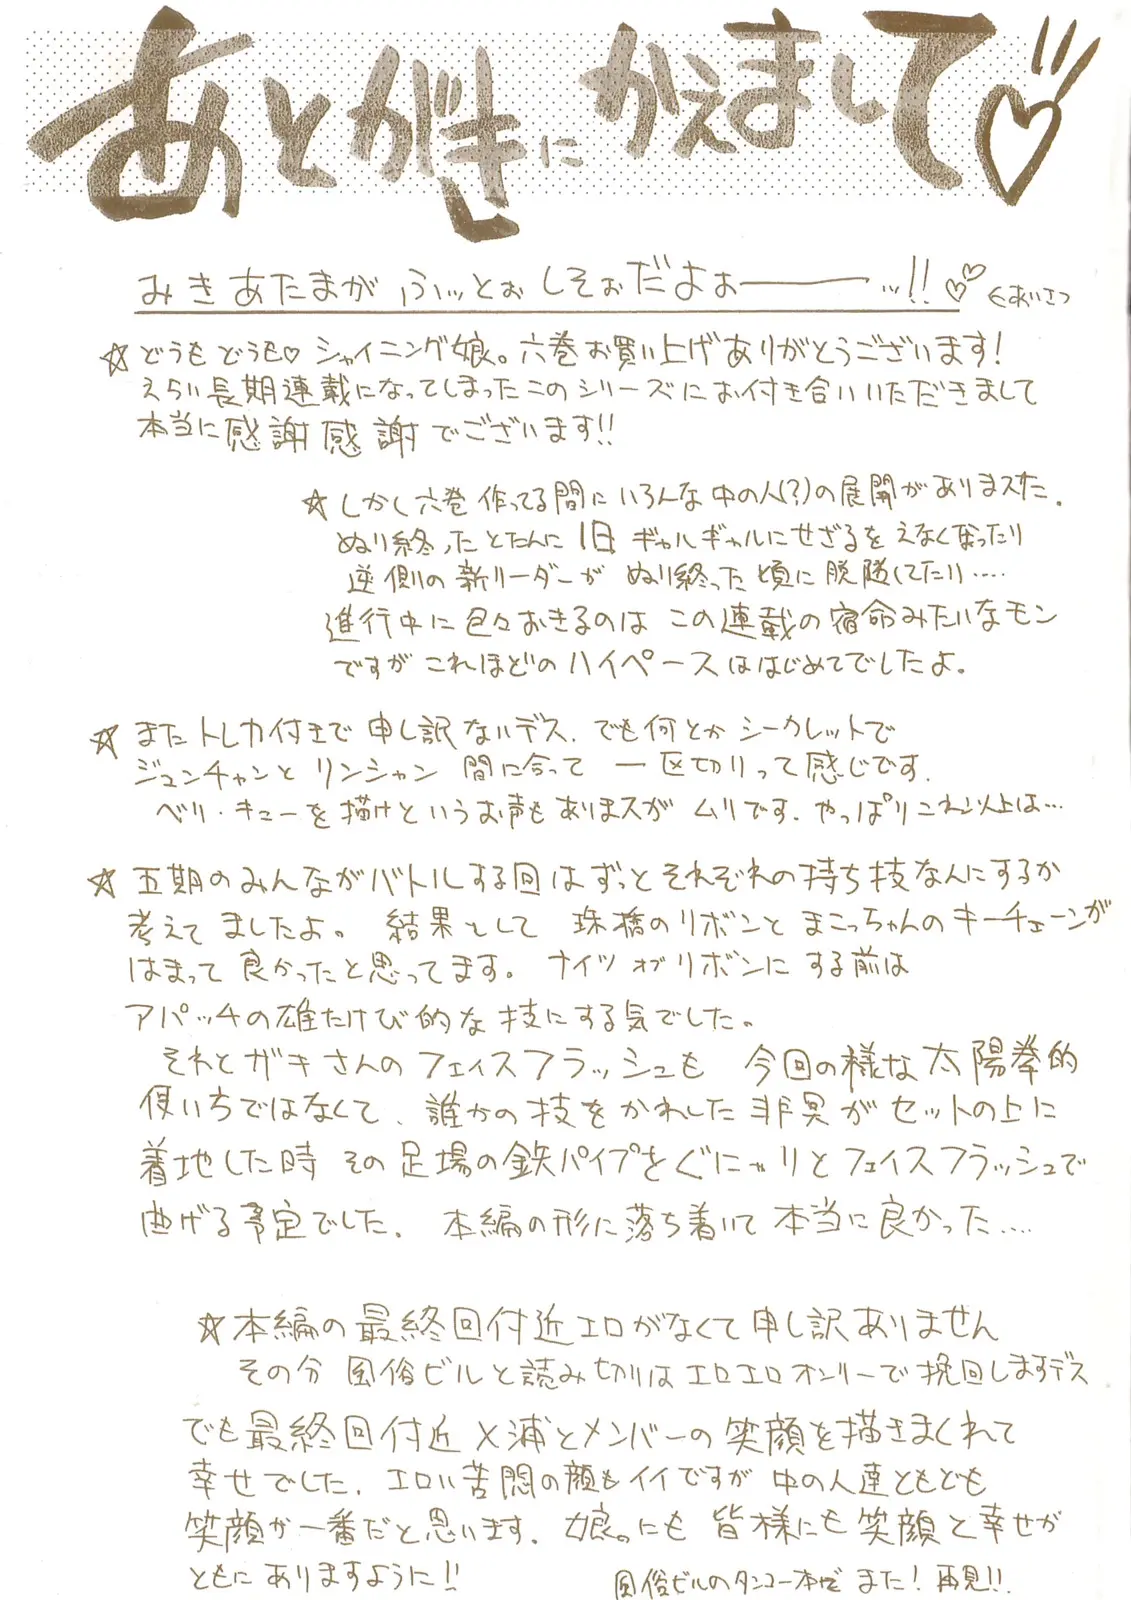 あとがきにかえまして♡
みきあたまが ふぃっとぉ しそぉだよぉーーー…!!♡♡ ←あいさつ
☆どうもどうも♡ シャイニング娘。六巻お買い上げありがとうございます!
えらい長期連載になってしまったこのシリーズにお付き合いいただきまして
本当に感謝感謝でございます!!
☆しかし六巻作ってる間にいろんな中の人(?)の展開がありまスた.
ぬり終ったとたんに1日ギャルギャルにせざるをえなくなったり
逆側の新リーダーがぬり終った頃に脱隊してたり....
進行中に色々おきるのはこの連載の宿命みたいなモン
ですがこれほどのハイペースははじめてでしたよ。
☆またトレカ付きで申し訳ないデス. でも何とかシークレットで
ジュンチャンとリンシャン間に合って一区切りって感じです.
ベリ・キューを描けというお声もありまスがムリです. やっぱりこれ以上は…
☆五期のみんながバトルする回はずっとそれぞれの持ち技なんにするか
考えてましたよ。結果として珠橋のリボンとまこっちゃんのキーチェーンが
はまって良かったと思ってます。ナイツオブリボンにする前は
アパッチの雄たけび的な技にする気でした。
それとガキさんのフェイスフラッシュも今回の様な太陽拳的
使いちではなくて、誰かの技をかわした非冥がセットの上に
着地した時その足場の鉄パイプをぐにゃりとフェイスフラッシュで
曲げる予定でした. 本編の形に落ち着いて本当に良かった....
☆本編の最終回付近エロがなくて申し訳ありません
その分 風俗ビルと読み切りはエロエロオンリーで挽回しますデス
でも最終回付近メ浦とメンバーの笑顔を描きまくれて
幸せでした. エロい苦悶の顔もイイですが中の人達ともども
笑顔が一番だと思います. 娘。にも皆様にも笑顔と幸せが
ともにありますように!!
風俗ビルのタンコー本でまた! 再見!!.